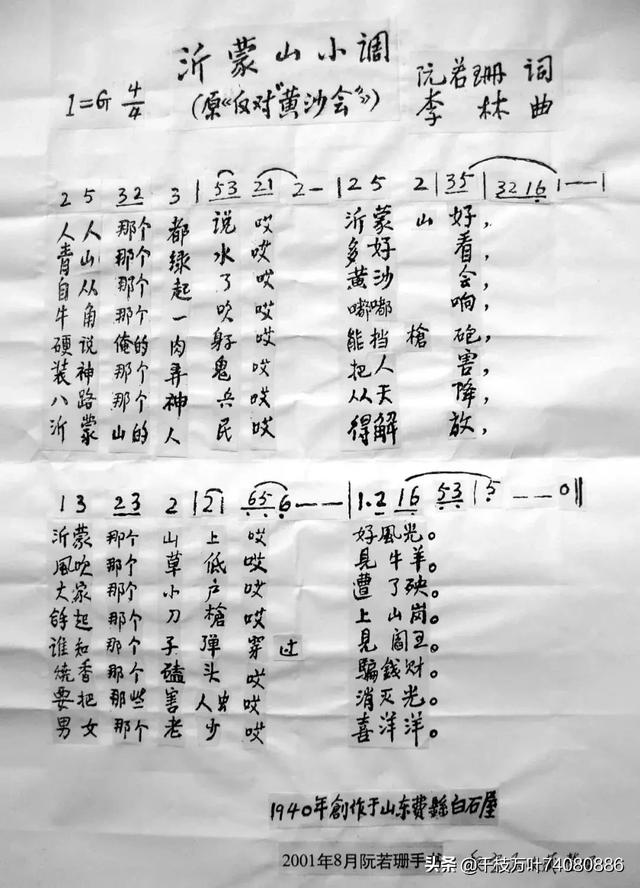 沂蒙山小调
(原《反对"黄沙会"》)
阮若珊 词
李林 曲
1=G 4/4
2 5 32 3 | 53 21 2 — | 2 5 2 | 35 | 32 16 | 1 — — |
人人那个都说哎 沂蒙山好,
青山那个绿水哎 多好看,
自从那个起了哎 黄沙会,
牛角那个一吹哎 嘟嘟响,
硬说俺的肉身哎 能挡槍砲,
装神那个弄鬼哎 把人害,
八路那个神兵哎 从天降,
沂蒙山的人民哎 得解放,
1 3 23 2 | 21 65 6 — — | 1.2 16 53 | 5 — — 0 ‖
沂蒙那个山上哎 好風光。
風吹那个草低哎 見牛羊。
大家那个小户哎 遭了殃。
那个刀槍哎 上山岗。
谁知那个子弹穿过 見阎王。
烧香那个磕头哎 騙錢财。
要把那些害人虫哎 消灭光。
男女那个老少哎 喜洋洋。
1940年創作于山东费縣白石屋
2001年8月阮若珊手
头条 @千枝万叶74080886